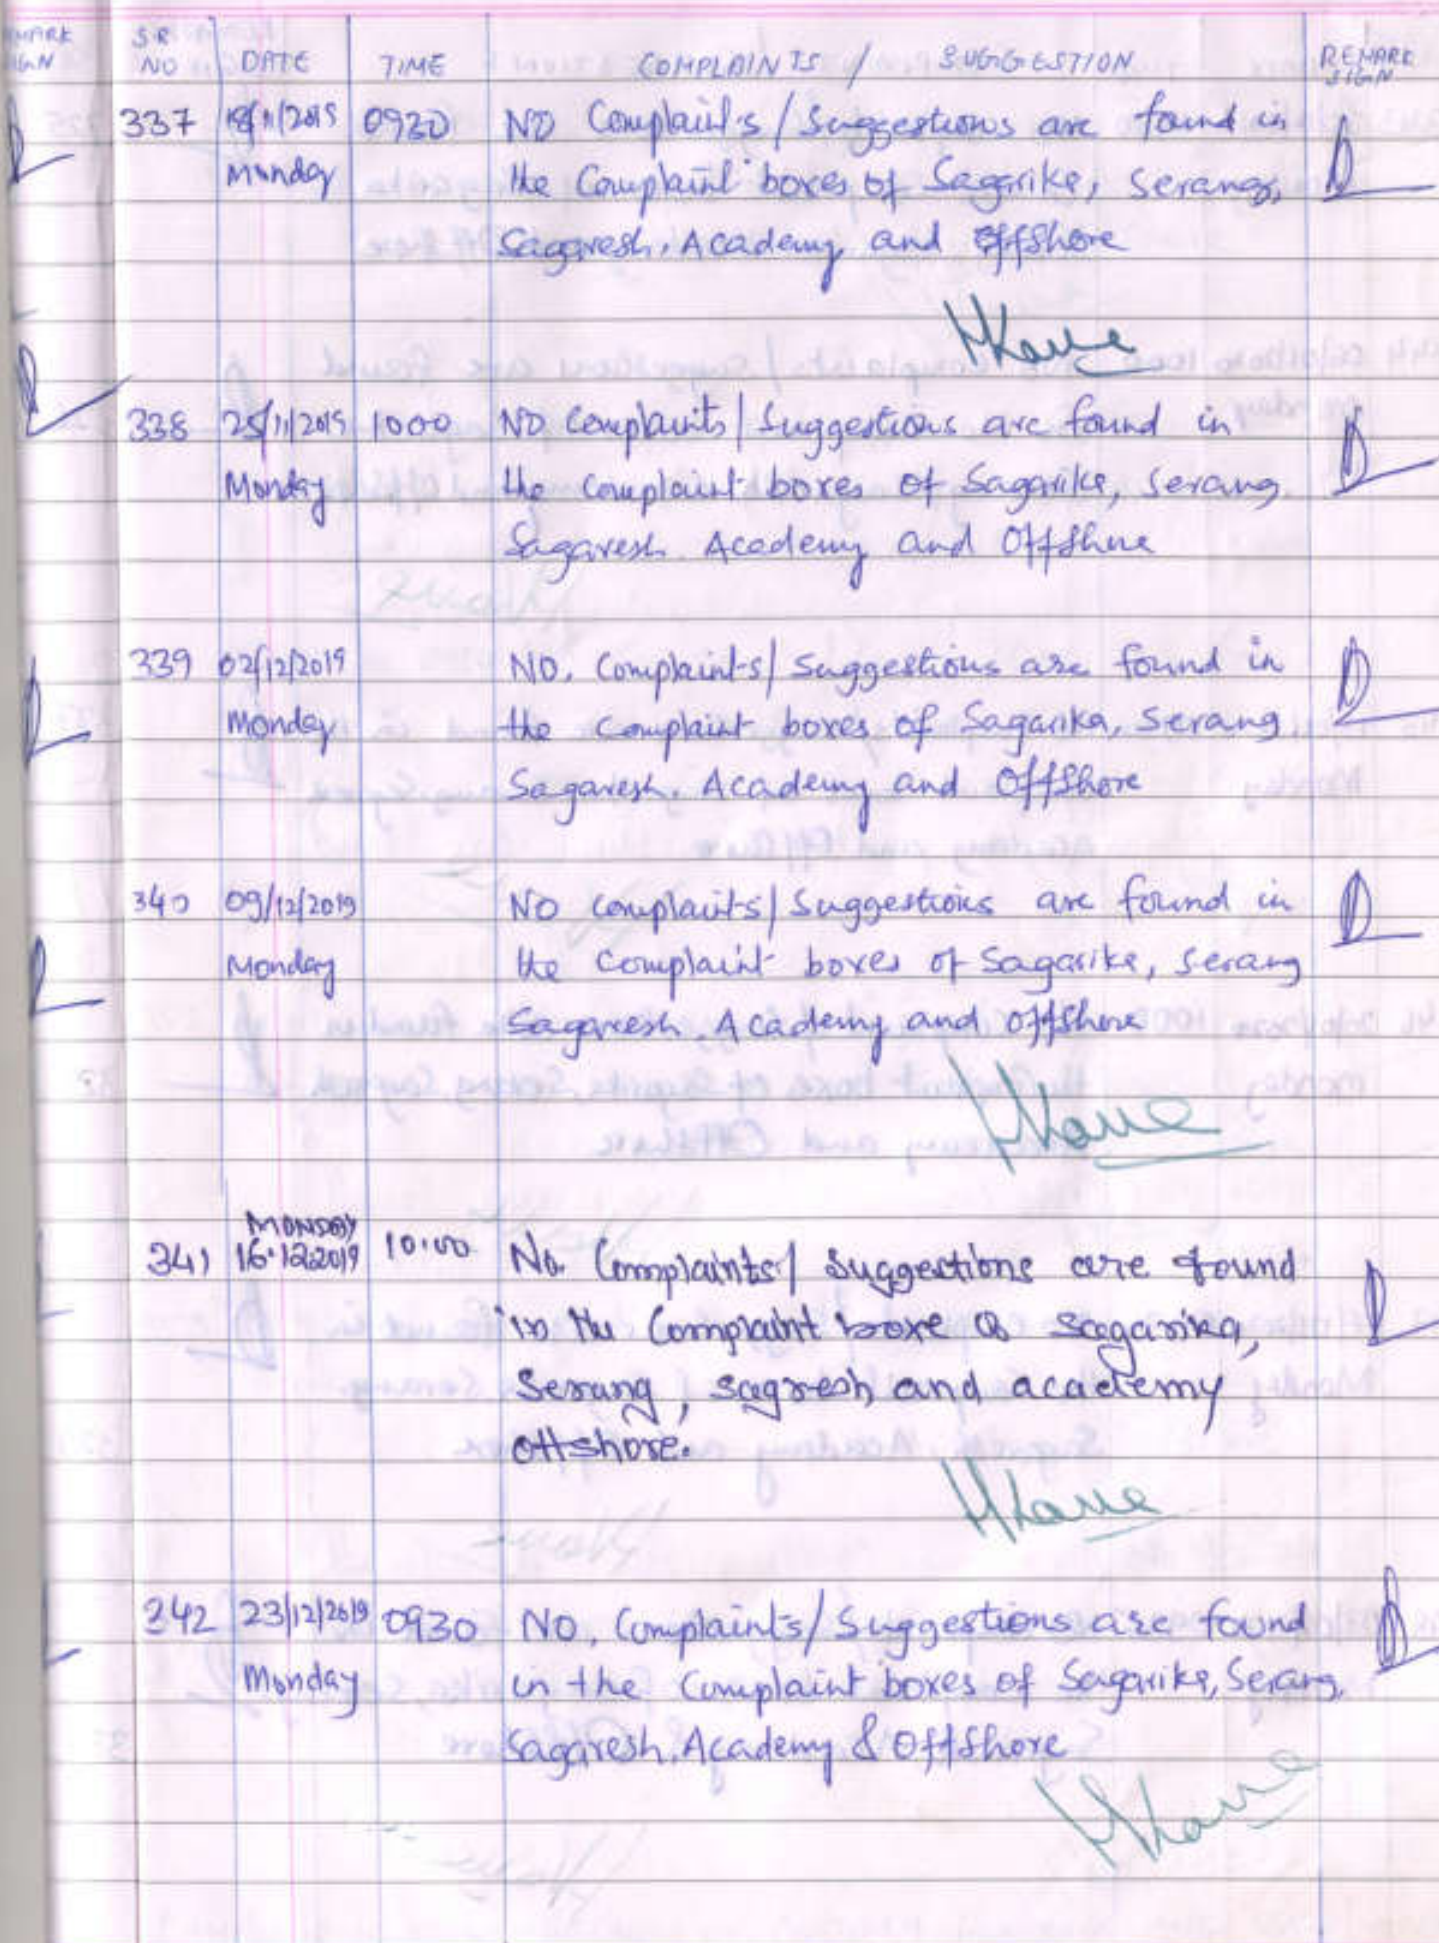 SR NO DATE TIME COMPLAINTS / SUGGESTION REMARK SIGN
337 18/11/2019 0930 NO Complaints/Suggestions are found in
Monday the Complaint boxes of Sagarika, Serang,
Sagaresh, Academy, and Offshore
338 25/11/2019 1000 NO Complaints/Suggestions are found in
Monday the complaint boxes of Sagarika, Serang
Sagaresh. Academy and Offshore
339 02/12/2019 NO. Complaints/Suggestions are found in
Monday the complaint boxes of Sagarika, Serang
Sagaresh, Academy and Offshore
340 09/12/2019 NO complaints/Suggestions are found in
Monday the Complaint boxes of Sagarika, Serang
Sagaresh, Academy and Offshore
MONDAY
341 16.12.2019 10.00 No. Complaints/Suggestions are found
in the Complaint boxe of sagarika,
Serang, sagresh and academy
offshore.
342 23/12/2019 0930 NO. Complaints/Suggestions are found
Monday in the Complaint boxes of Sagarika, Serang,
Sagaresh, Academy & Offshore